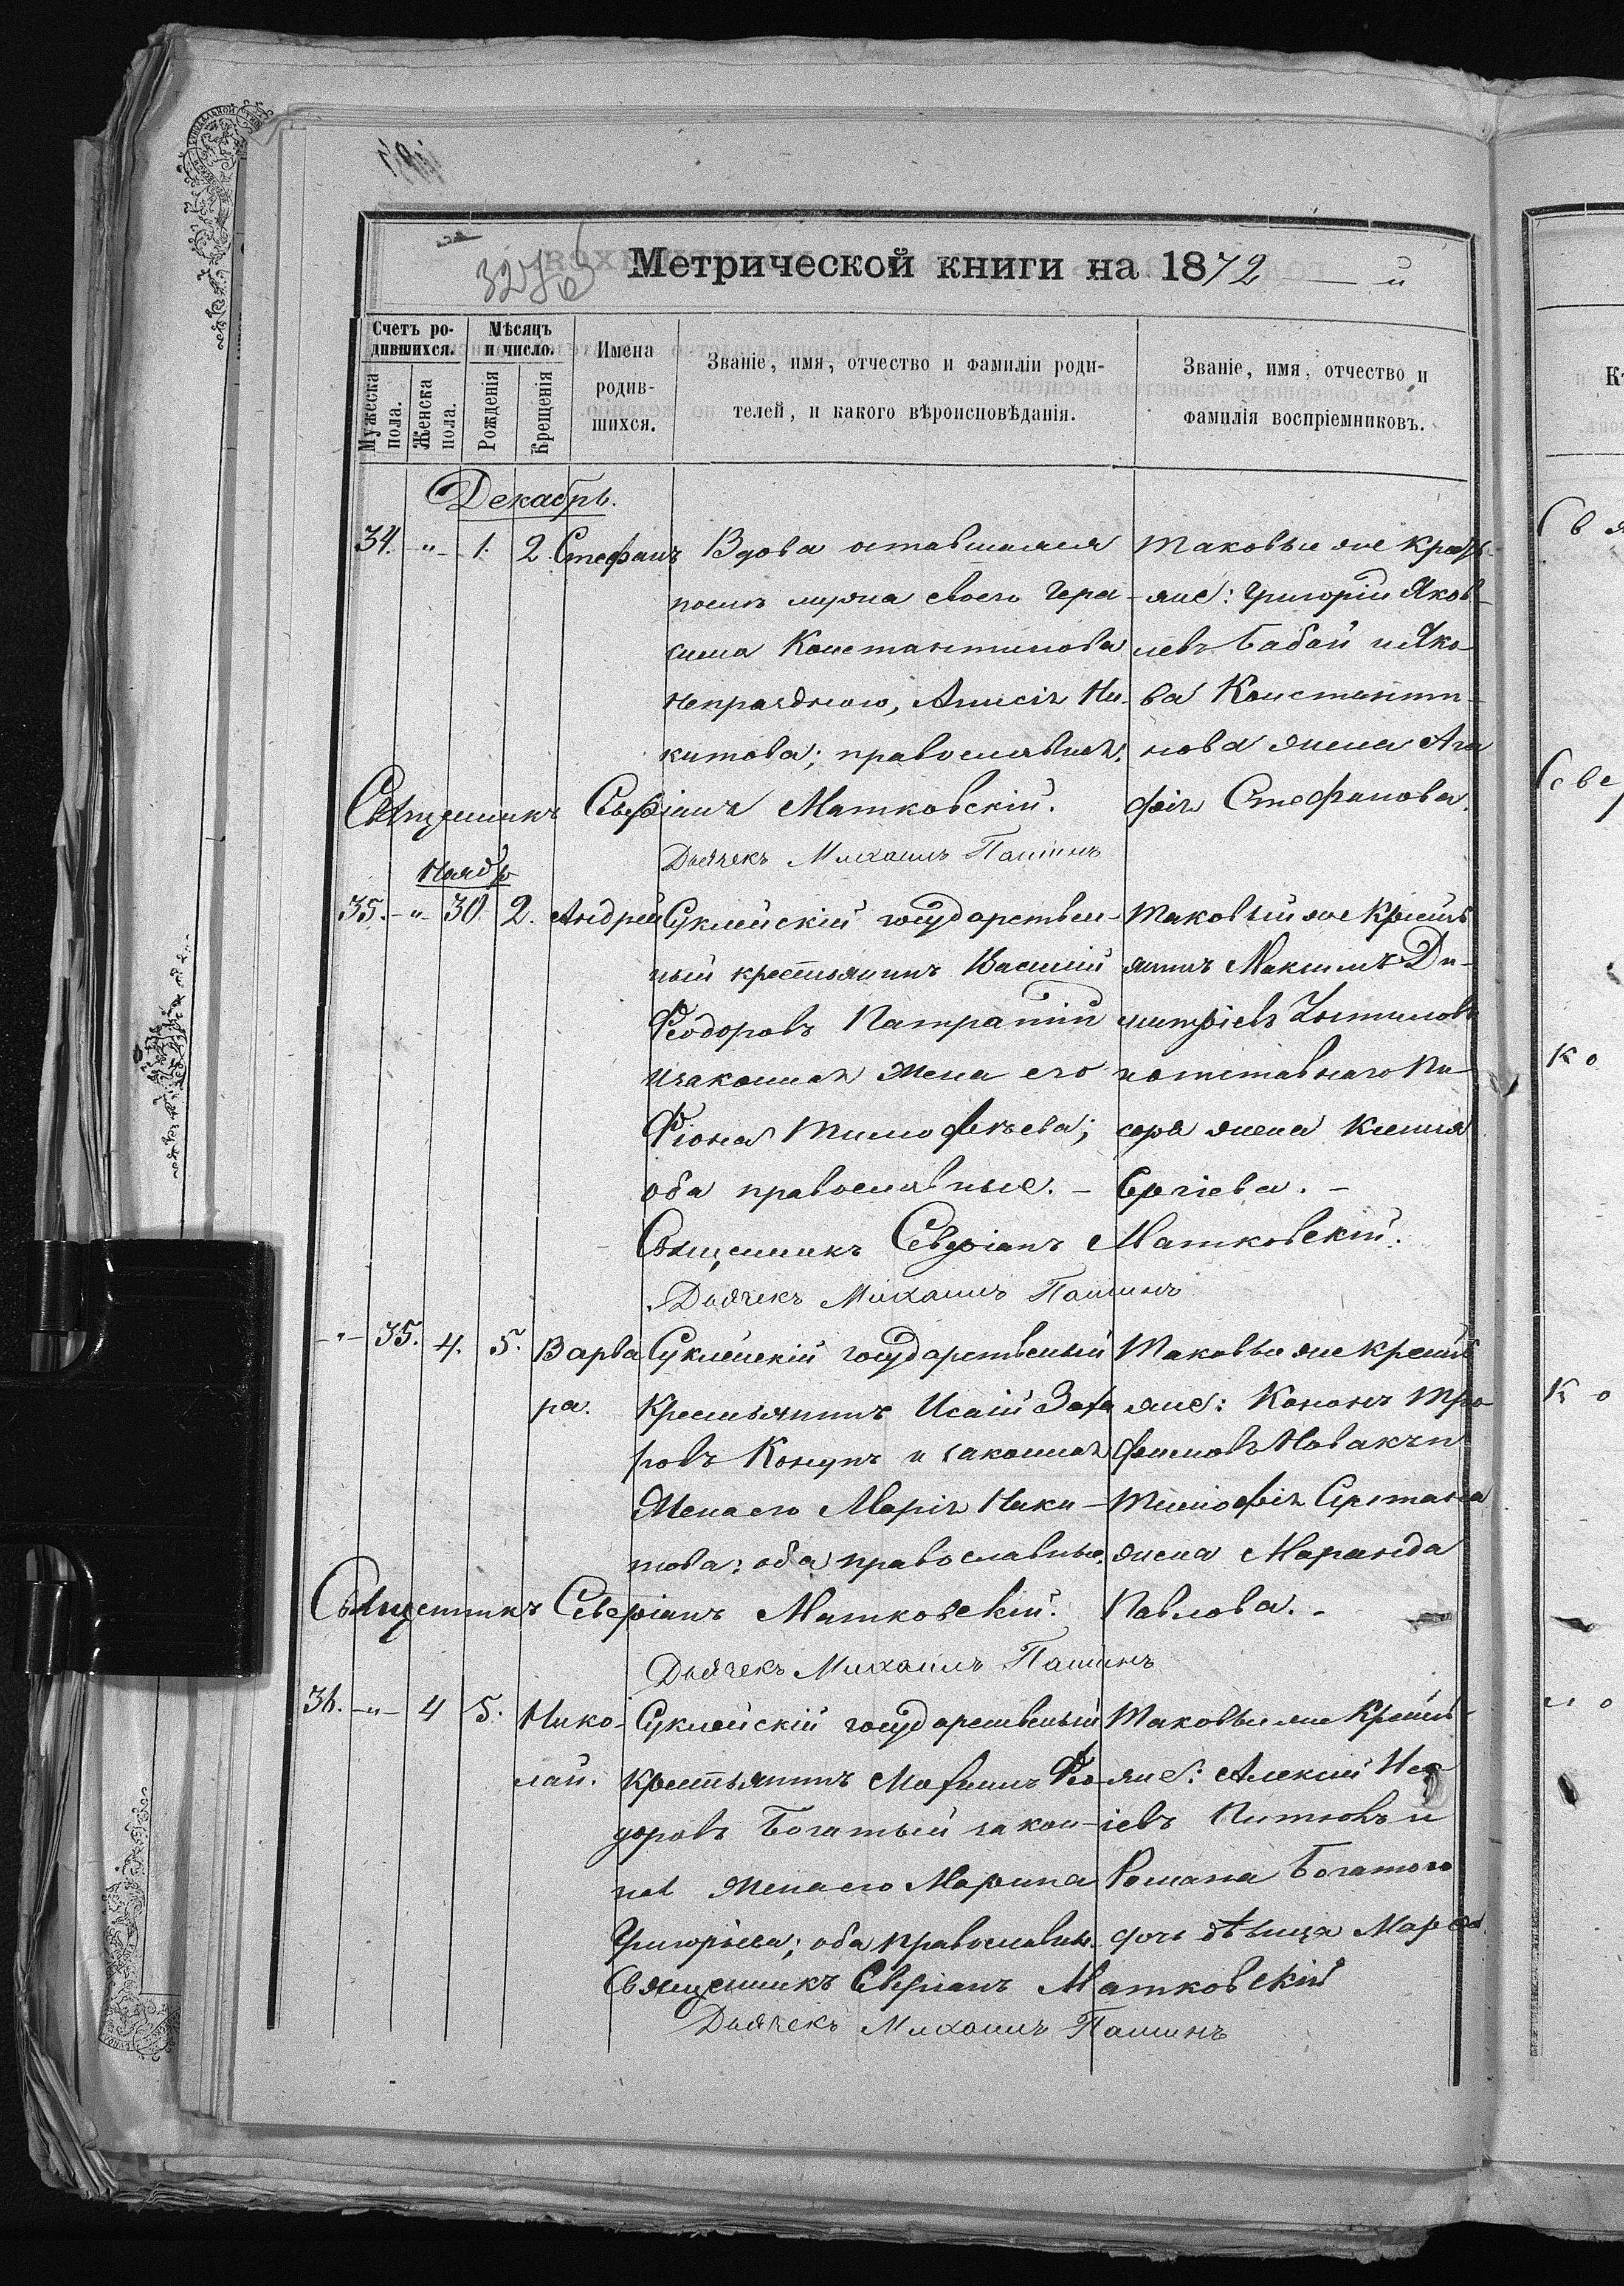 Метрической книги на 1872 й
Счетъ ро-
дившихся.
Мѣсяцъ
и число.
Мужеска
пола.
Женска
пола.
Рожденія
Крещенія
Имена
родив-
шихся.
Званіе, имя, отчество и фамиліи роди-
телей, и какого вѣроисповѣданія.
Званіе, имя, отчество и
фамилія воспріемниковъ.
Декабрь.
34. -"- 1. 2. Стефанъ
Вдова оставшаяся
послѣ мужа своего Гера-
сима Константинова
Непраздного, Анисія Ни-
китова; православная.
Таковые же кресть-
яне: Григорій Яков-
левъ Бабай и Яко-
ва Константи-
нова жена Ага
фія Стефанова.
Священникъ Северіанъ Матковскій.
Дьячекъ Михаилъ Пашинъ
Ноябр
35. -"- 30 2. Андрей
Суклейскій государствен-
ный крестьянинъ Василій
Ѳеодоровъ Патратій
и законная жена его
Ѳіона Тимофеева;
оба православные. -
Таковый же кресть
янинъ Максимъ Ди-
митріевъ
и отставнаго Пи
саря жена Ксенія
Сергіева. -
Священникъ Северіанъ Матковскій.
Дьячекъ Михаилъ Пашинъ
-"- 35. 4. 5. Варва
ра.
Суклейскій государственный
крестьянинъ Исаій Заха
ровъ Концупъ и законная
жена его Марія Ники-
това; оба православные.
Таковые же кресть
яне: Кононъ Тро
фимовъ Новакъ и
Тимофія Сретана
жена Маранда
Павлова. -
Священникъ Северіанъ Матковскій.
Дьячекъ Михаилъ Пашинъ
36. -"- 4 5. Нико-
лай.
Суклейскій государственный
крестьянинъ Мафимъ Ѳео-
доровъ Богатый закон-
ная жена его Марина
Григорьева; оба православные.
Таковые же кресть-
яне: Алексій Иса
іевъ Питюкъ и
Романа Богатого
дочь дѣвица Марѳа.
Священникъ Северіанъ Матковскій
Дьячекъ Михаилъ Пашинъ